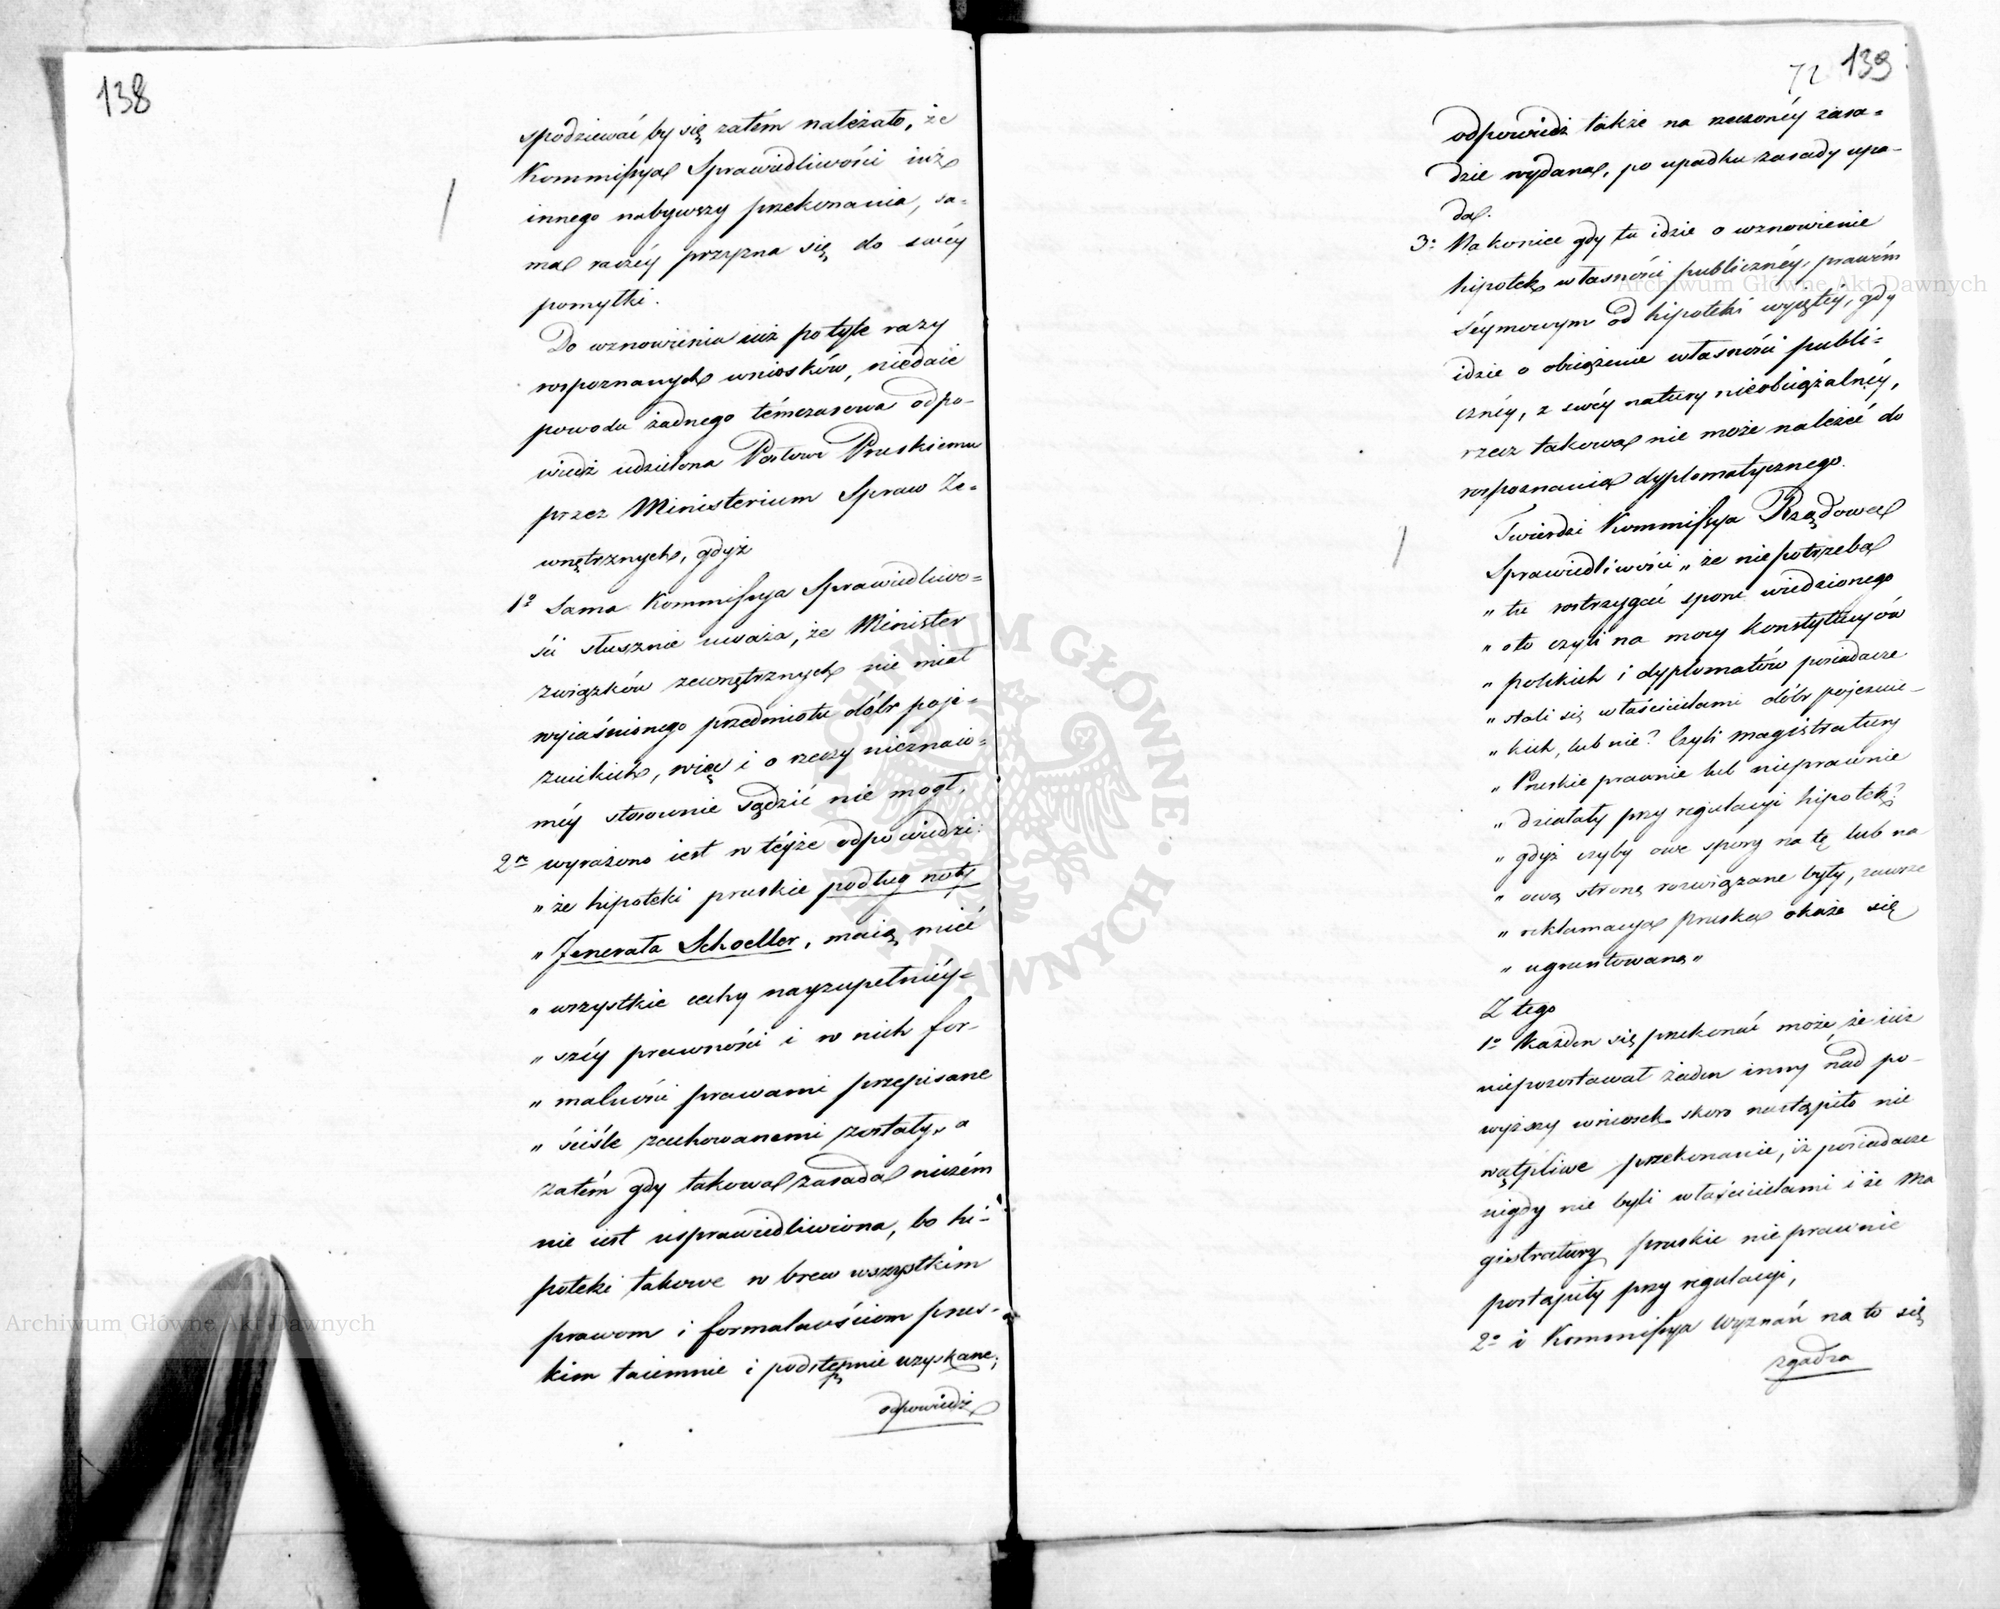 138
spodziewać by się zatém należało, że
Kommissya Sprawiedliwości iuż
innego nabywszy przekonania, sa-
ma raczéy przyzna się do swéy
pomyłki.
Do wznowienia iuż po tyle razy
rozpoznanych wniosków, niedaie
powodu żadnego témczasowa odpo-
wiedź udzielona Posłowi Pruskiemu
przez Ministerium Spraw Ze-
wnętrznych, gdyż
1o Sama Kommissya Sprawiedliwo-
ści słusznie uważa, że Minister
związków zewnętrznych nie miał
wyiaśnionego przedmiotu dóbr poje-
zuickich, więc i o rzeczy nieznaio-
méy stosownie sądzić nie mógł.
2re wyrażono iest w téyże odpowiedzi:
„ że hipoteki pruskie podług noty
„ Jenerała Schoeller, maią mieć
„ wszystkie cechy nayzupełniéy-
„ széy prawności i w nich for-
„ malności prawami przepisane
„ ściśle zachowanemi zostały„ a
zatém gdy takowa zasada niczém
nie iest usprawiedliwiona, bo hi-
poteki takowe w brew wszystkim
prawom i formalnościom prus-
kim taiemnie i podstępnie uzyskane;
odpowiedź
72 139
odpowiedź także na rzeczonéy zasa-
dzie wydana, po upadku zasady upa-
da.
3o Nakoniec gdy tu idzie o wznowienie
hipotek własności publicznéy, prawém
séymowym od hipoteki wyiętéy, gdy
idzie o obciążenie własności publi-
cznéy, z swéy natury nieobciążalnéy,
rzecz takowa nie może należeć do
rozpoznania dyplomatycznego.
Twierdzi Kommissya Rządowa
Sprawiedliwości „ że niepotrzeba
„ tu rostrzygać sporu wiedzionego
„ oto czyli na mocy konstytucyów
„ polskich i dyplomatów posiadacze
„ stali się właścicielami dóbr pojezuic-
„ kich, lub nie? Czyli magistratury
„ Pruskie prawnie lub nieprawnie
„ działały przy regulacyi hipotek?
„ gdyż czyby owe spory na tę lub na
„ ową stronę rozwiązane były, zawsze
„ reklamacya pruska okaże się
„ ugruntowaną „
Z tego
1o Każden się przekonać może, że iuż
niepozostawał żaden inny nad po-
wyższy wniosek skoro nastąpiło nie
wątpliwe przekonanie, iż posiadacze
nigdy nie byli właścicielami i że Ma
gistratury pruskie nieprawnie
postąpiły przy regulacyi,
2o i Kommissya Wyznań na to się
zgadza
Archiwum Główne Akt Dawnych
Archiwum Główne Akt Dawnych
ARCHIWUM GŁÓWNE AKT DAWNYCH